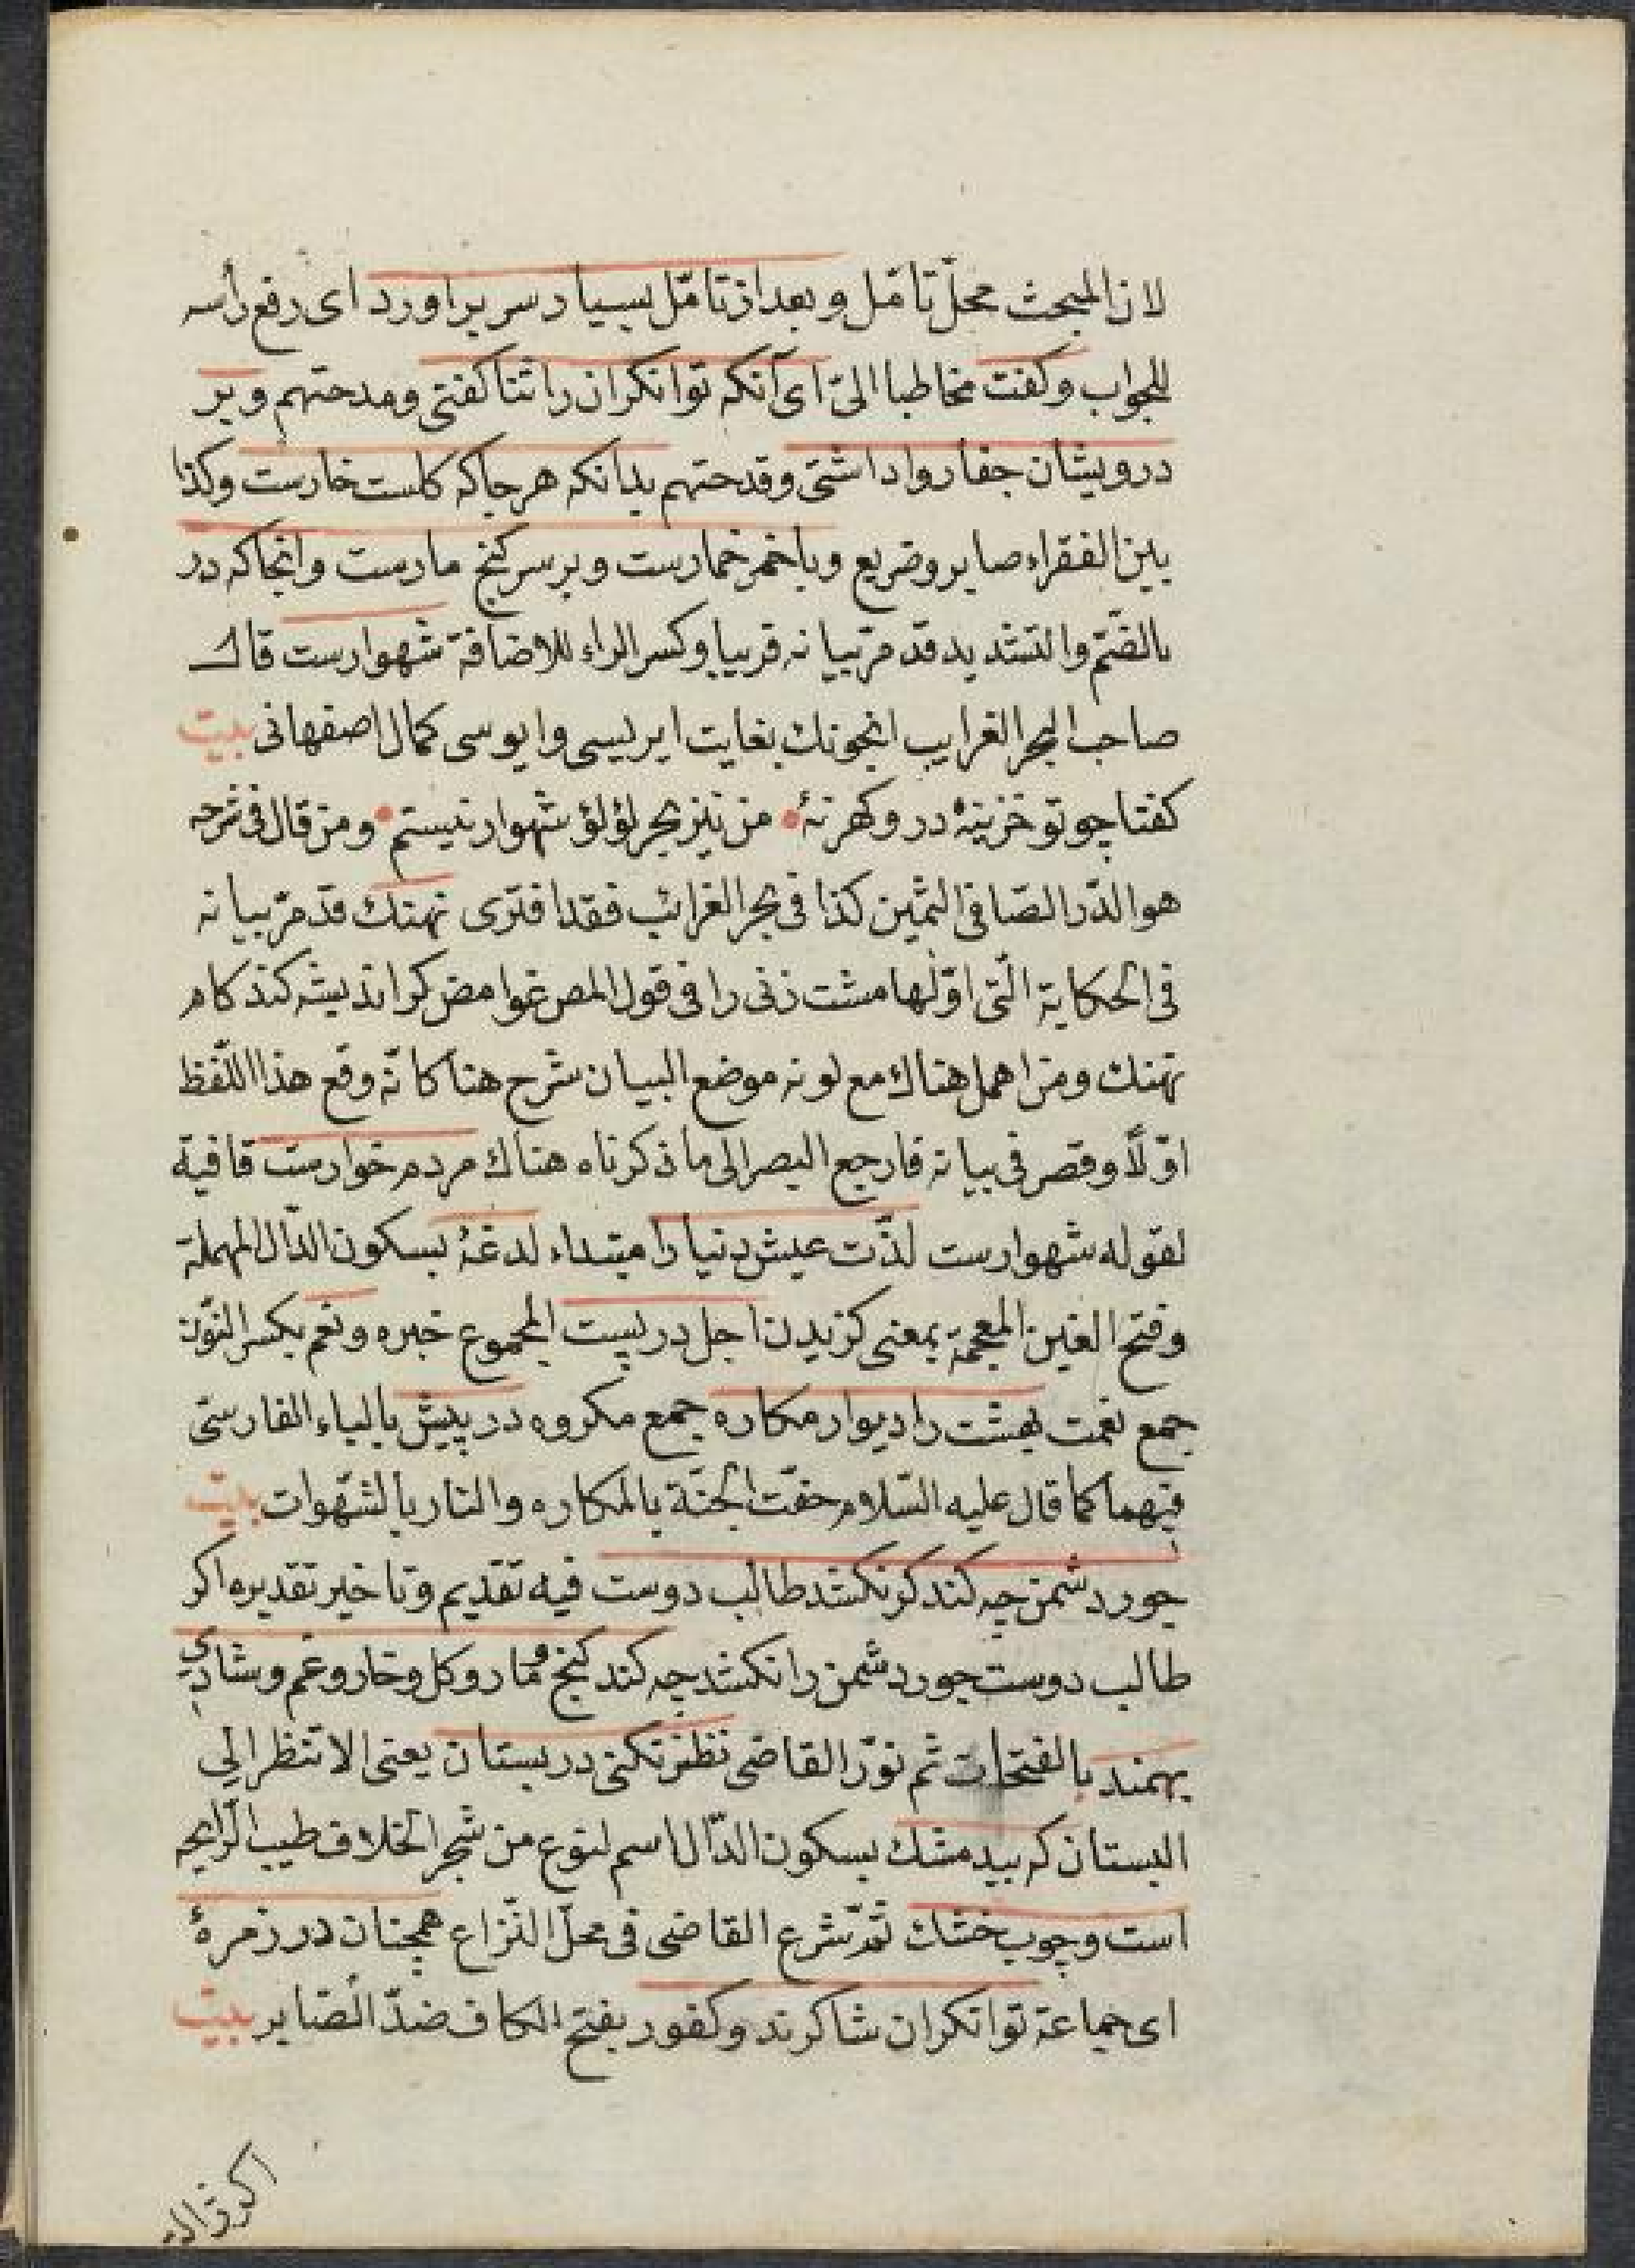 لان المبحث محلّ تامّل وبعد از تامّل بسيار سر براورد اى رفع رأسه
للجواب وكفت مخاطبا الىّ اى آنكه توانكران را ثنا كفتى ومدحتهم وبر
درويشان جفا روا داشتى وقدحتهم بدانكه هرجاكه كلست خارست وكذا
بين الفقراء صابر وضريع وباخمر خمارست وبر سر كنج مارست وانجاكه در
بالضّم والتشديد قد مرّ بيانه قريبا وكسر الراء للاضافة شهوارست قال
صاحب البحر الغرايب انجونك بغايت ايريسى وايوسى كمال اصفهانى بيت
كفتا چو تو خزينهٔ در وكهر نهٔ من نيز بحر لؤلؤ شهوار نيستم ومن قال فى شرحه
هو الدّر الصّافى الثمين كذا فى بحر الغرائب فقد افترى نهنك قد مرّ بيانه
فى الحكاية الّتى اوّلها مشت زنى را فى قول المص غواص كر انديشه كند كام
نهنك ومن اهمل هناك مع لونه موضع البيان شرح هنا كانّه وقع هذا اللّفظ
اوّلاً وقصر فى بيانه فارجع البصر الى ما ذكرناه هناك مردم خوارست قافية
لقوله شهوارست لذّت عيش دنيا را مبتداء لدغهٔ بسكون الدّال المهملة
وفتح الغين المعجمة بمعنى كزيدن اجل در پيست المجموع خبره ونعم بكسر النّون
جمع نعمت بهشت را ديوار مكاره جمع مكروه در پيش بالباء الفارسىّ
فيهما كما قال عليه السّلام حفّت الجنّة بالمكاره والنار بالشّهوات بيت
جور دشمن چه كند كر نكشد طالب دوست فيه تقديم وتاخير تقديره اكر
طالب دوست جور دشمن را نكشد چه كند كنج و مار وكل وخار وغم وشادي
بهمند بالفتحات ثم نوّر القاضى نظر نكنى در بستان يعنى الا تنظر الي
البستان كه بيد مشك بسكون الدّال اسم لنوع من شجر الخلاف طيب الرّايحه
است وچوب خشك ثمّ شرع القاضى فى محلّ النّزاع همچنان در زمرهٔ
اى جماعة توانكران شاكرند وكفور بفتح الكاف ضدّ الصّابر بيت
اكر ژاله